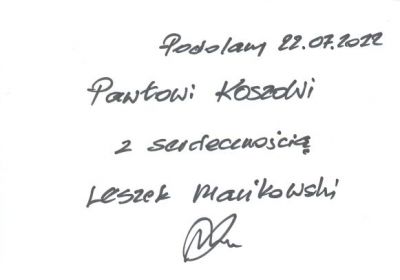 Podolany 22.07.2022
Pawłowi Koszowi
z serdecznością
Leszek Mańkowski